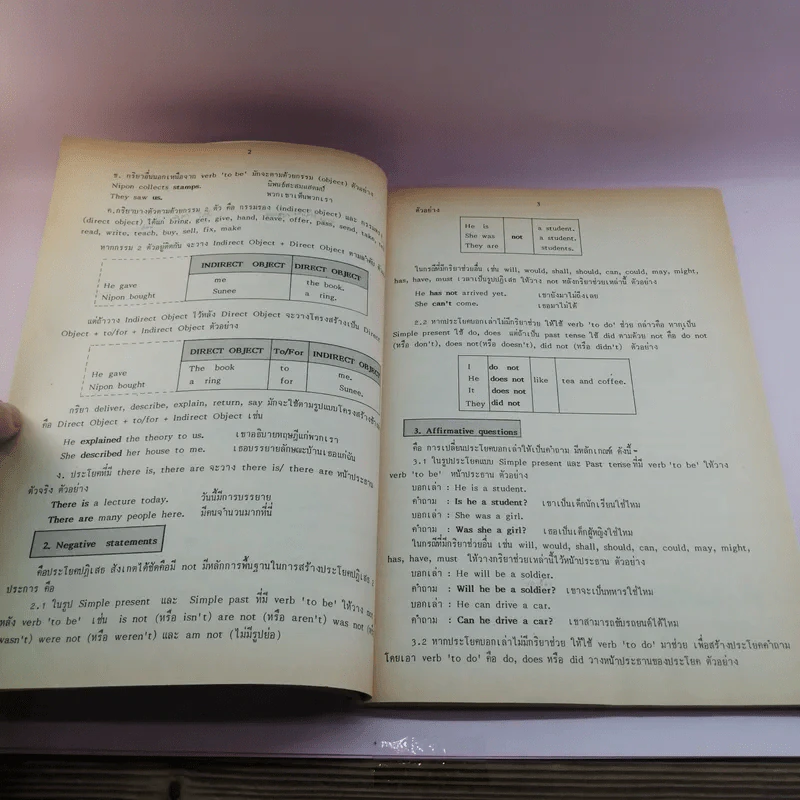 2
ข. กริยาอื่นนอกเหนือจาก verb 'to be' มักจะตามด้วยกรรม (object) ตัวอย่าง
Nipon collects stamps. นิพนธ์สะสมแสตมป์
They saw us. พวกเขาเห็นพวกเรา
ค.กริยาบางตัวตามด้วยกรรม 2 ตัว คือ กรรมรอง (indirect object) และ กรรมตรง
(direct object) ได้แก่ bring, get, give, hand, leave, offer, pass, send, take,
read, write, teach, buy, sell, fix, make
หากกรรม 2 ตัวอยู่ติดกัน จะวาง Indirect Object + Direct Object ตามลำดับ
INDIRECT OBJECT DIRECT OBJECT
He gave me the book.
Nipon bought Sunee a ring.
แต่ถ้าวาง Indirect Object ไว้หลัง Direct Object จะวางโครงสร้างเป็น Direct
Object + to/for + Indirect Object ตัวอย่าง
DIRECT OBJECT To/For INDIRECT OBJECT
He gave The book to me.
Nipon bought a ring for Sunee.
กริยา deliver, describe, explain, return, say มักจะใช้ตามรูปแบบโครงสร้างข้าง
คือ Direct Object + to/for + Indirect Object เช่น
He explained the theory to us. เขาอธิบายทฤษฎีแก่พวกเรา
She described her house to me. เธอบรรยายลักษณะบ้านเธอแก่ฉัน
ง. ประโยคที่มี there is, there are จะวาง there is/ there are หน้าประธาน
ตัวจริง ตัวอย่าง
There is a lecture today. วันนี้มีการบรรยาย
There are many people here. มีคนจำนวนมากที่นี่
2. Negative statements
คือประโยคปฏิเสธ สังเกตได้ชัดคือมี not มีหลักการพื้นฐานในการสร้างประโยคปฏิเสธ
ประการ คือ
2.1 ในรูป Simple present และ Simple past ที่มี verb 'to be' ให้วาง not
หลัง verb 'to be' เช่น is not (หรือ isn't) are not (หรือ aren't) was not (หรือ
wasn't) were not (หรือ weren't) และ am not (ไม่มีรูปย่อ)
3
ตัวอย่าง
He is a student.
She was not a student.
They are students.
ในกรณีที่มีกริยาช่วยอื่น เช่น will, would, shall, should, can, could, may, might,
has, have, must เวลาเป็นรูปปฏิเสธ ให้วาง not หลังกริยาช่วยเหล่านี้ ตัวอย่าง
He has not arrived yet. เขายังมาไม่ถึงเลย
She can't come. เธอมาไม่ได้
2.2 หากประโยคบอกเล่าไม่มีกริยาช่วย ให้ใช้ verb 'to do' ช่วย กล่าวคือ หากเป็น
Simple present ใช้ do, does แต่ถ้าเป็น past tense ใช้ did ตามด้วย not คือ do not
(หรือ don't), does not(หรือ doesn't), did not (หรือ didn't) ตัวอย่าง
I do not
He does not like tea and coffee.
It does not
They did not
3. Affirmative questions
คือ การเปลี่ยนประโยคบอกเล่าให้เป็นคำถาม มีหลักเกณฑ์ ดังนี้-
3.1 ในรูปประโยคแบบ Simple present และ Past tense ที่มี verb 'to be' ให้วาง
verb 'to be' หน้าประธาน ตัวอย่าง
บอกเล่า : He is a student.
คำถาม : Is he a student? เขาเป็นเด็กนักเรียนใช่ไหม
บอกเล่า : She was a girl.
คำถาม : Was she a girl? เธอเป็นเด็กผู้หญิงใช่ไหม
ในกรณีที่มีกริยาช่วยอื่น เช่น will, would, shall, should, can, could, may, might,
has, have, must ให้วางกริยาช่วยเหล่านี้ไว้หน้าประธาน ตัวอย่าง
บอกเล่า : He will be a soldier.
คำถาม : Will he be a soldier? เขาจะเป็นทหารใช่ไหม
บอกเล่า : He can drive a car.
คำถาม : Can he drive a car? เขาสามารถขับรถยนต์ได้ไหม
3.2 หากประโยคบอกเล่าไม่มีกริยาช่วย ให้ใช้ verb 'to do' มาช่วย เพื่อสร้างประโยคคำถาม
โดยเอา verb 'to do' คือ do, does หรือ did วางหน้าประธานของประโยค ตัวอย่าง